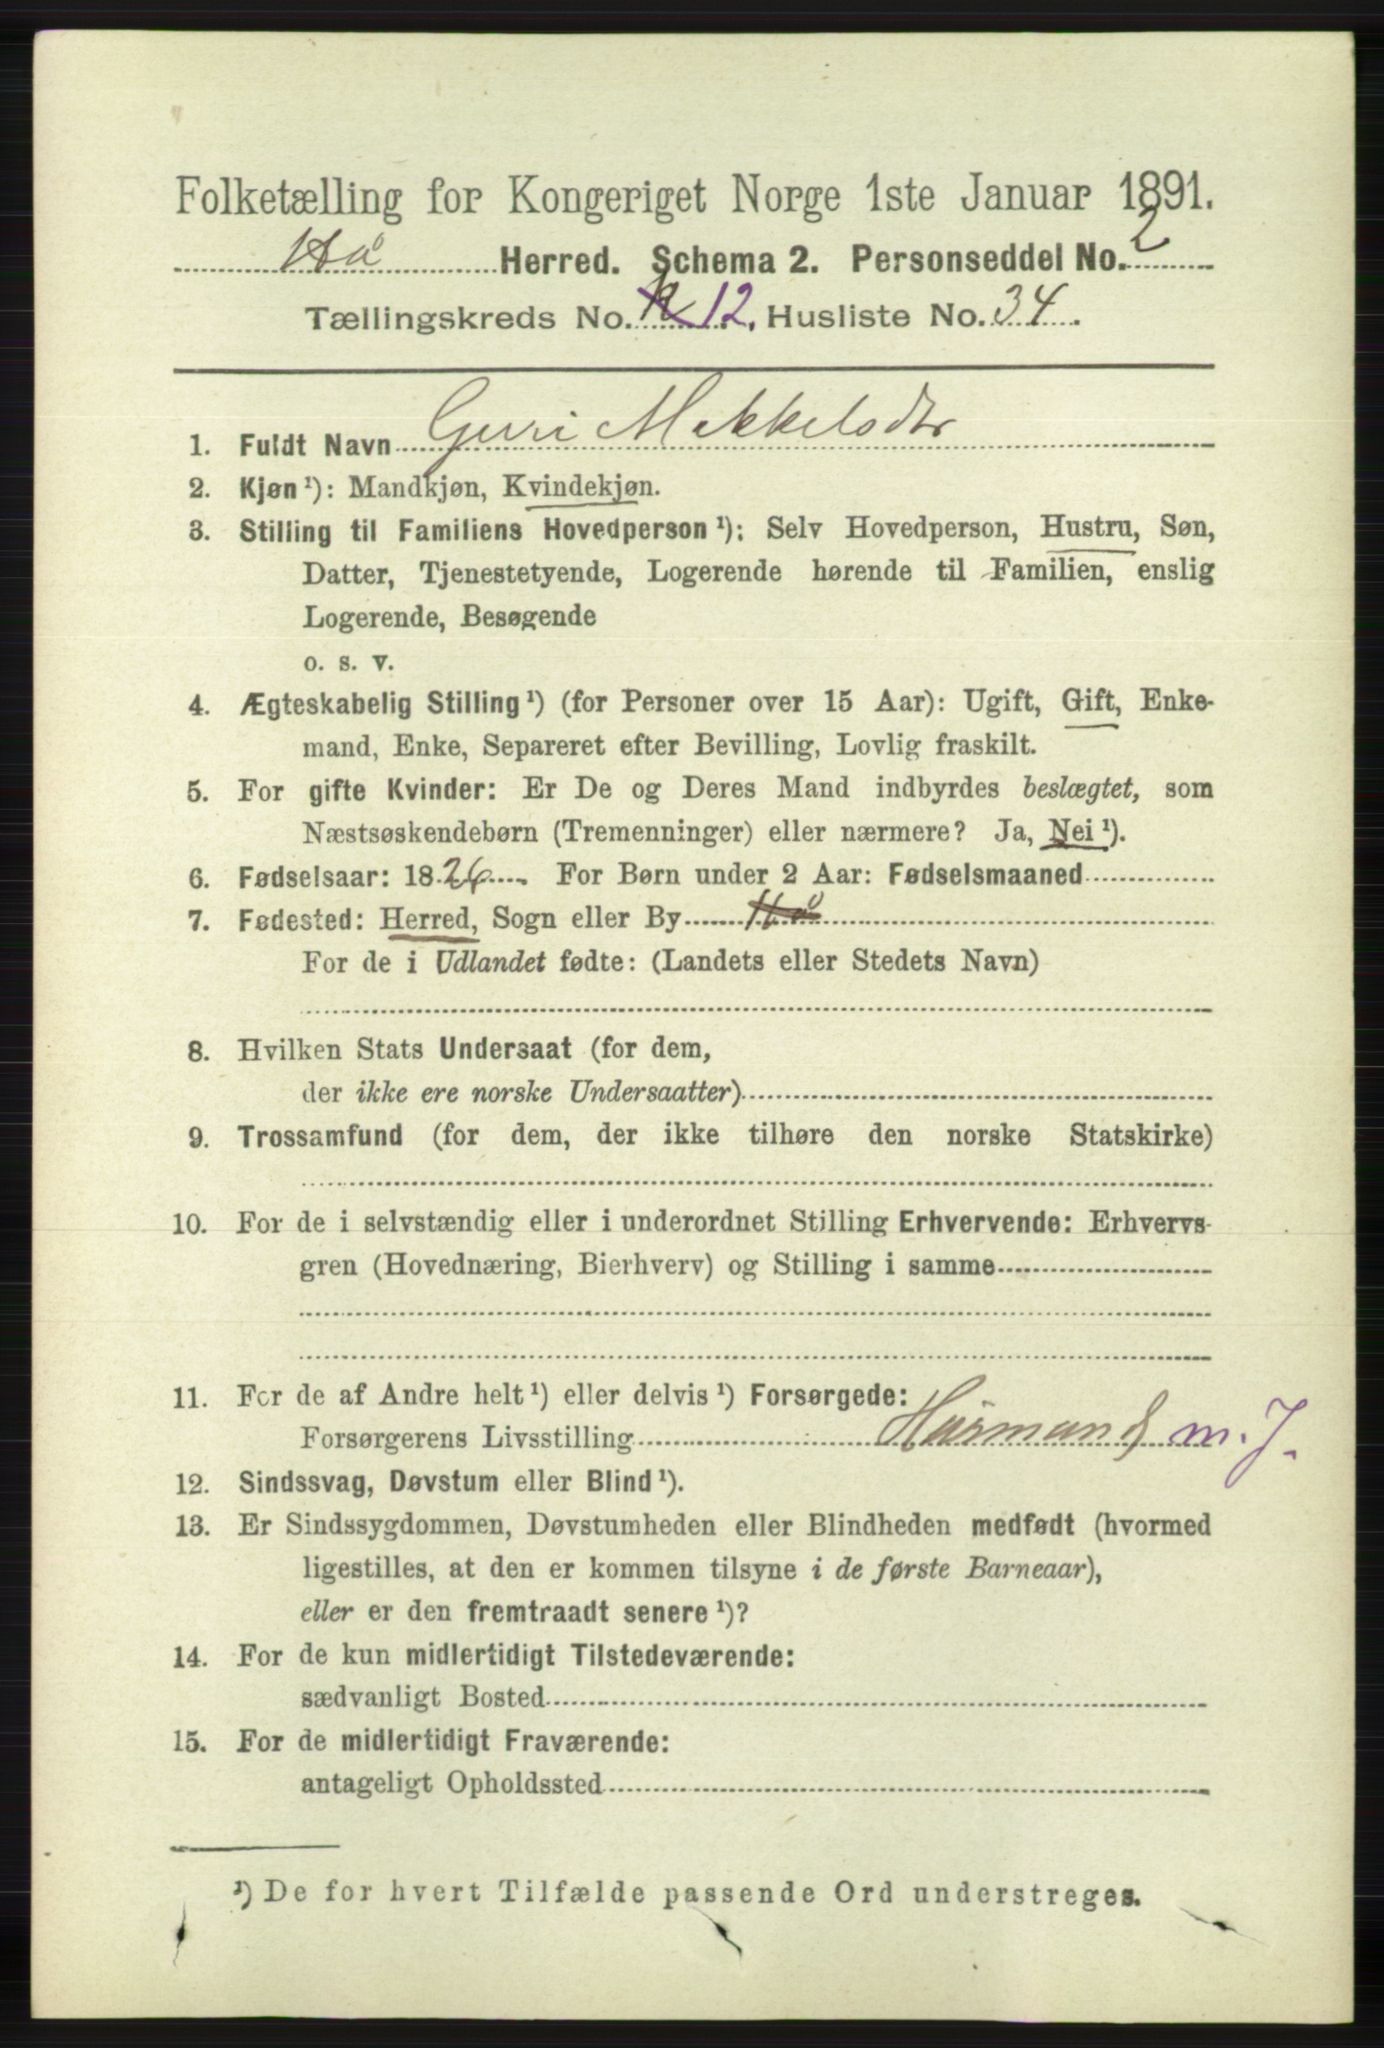 Folketælling for Kongeriget Norge 1ste Januar 1891.
Hå Herred. Schema 2. Personseddel No. 2
Tællingskreds No. 12. Husliste No. 34.
1. Fuldt Navn Guri Mekkelsdtr
2. Kjøn ¹): Mandkjøn, Kvindekjøn.
3. Stilling til Familiens Hovedperson ¹): Selv Hovedperson, Hustru, Søn,
Datter, Tjenestetyende, Logerende hørende til Familien, enslig
Logerende, Besøgende
o. s. v.
4. Ægteskabelig Stilling ¹) (for Personer over 15 Aar): Ugift, Gift, Enke-
mand, Enke, Separeret efter Bevilling, Lovlig fraskilt.
5. For gifte Kvinder: Er De og Deres Mand indbyrdes beslægtet, som
Næstsøskendebørn (Tremenninger) eller nærmere? Ja, Nei ¹).
6. Fødselsaar: 1826. For Børn under 2 Aar: Fødselsmaaned
7. Fødested: Herred, Sogn eller By Hå
For de i Udlandet fødte: (Landets eller Stedets Navn)
8. Hvilken Stats Undersaat (for dem,
der ikke ere norske Undersaatter)
9. Trossamfund (for dem, der ikke tilhøre den norske Statskirke)
10. For de i selvstændig eller i underordnet Stilling Erhvervende: Erhvervs-
gren (Hovednæring, Bierhverv) og Stilling i samme
11. For de af Andre helt ¹) eller delvis ¹) Forsørgede:
Forsørgerens Livsstilling Húsmand m. J.
12. Sindssvag, Døvstum eller Blind ¹).
13. Er Sindssygdommen, Døvstumheden eller Blindheden medfødt (hvormed
ligestilles, at den er kommen tilsyne i de første Barneaar),
eller er den fremtraadt senere ¹)?
14. For de kun midlertidigt Tilstedeværende:
sædvanligt Bosted
15. For de midlertidigt Fraværende:
antageligt Opholdssted
¹) De for hvert Tilfælde passende Ord understreges.